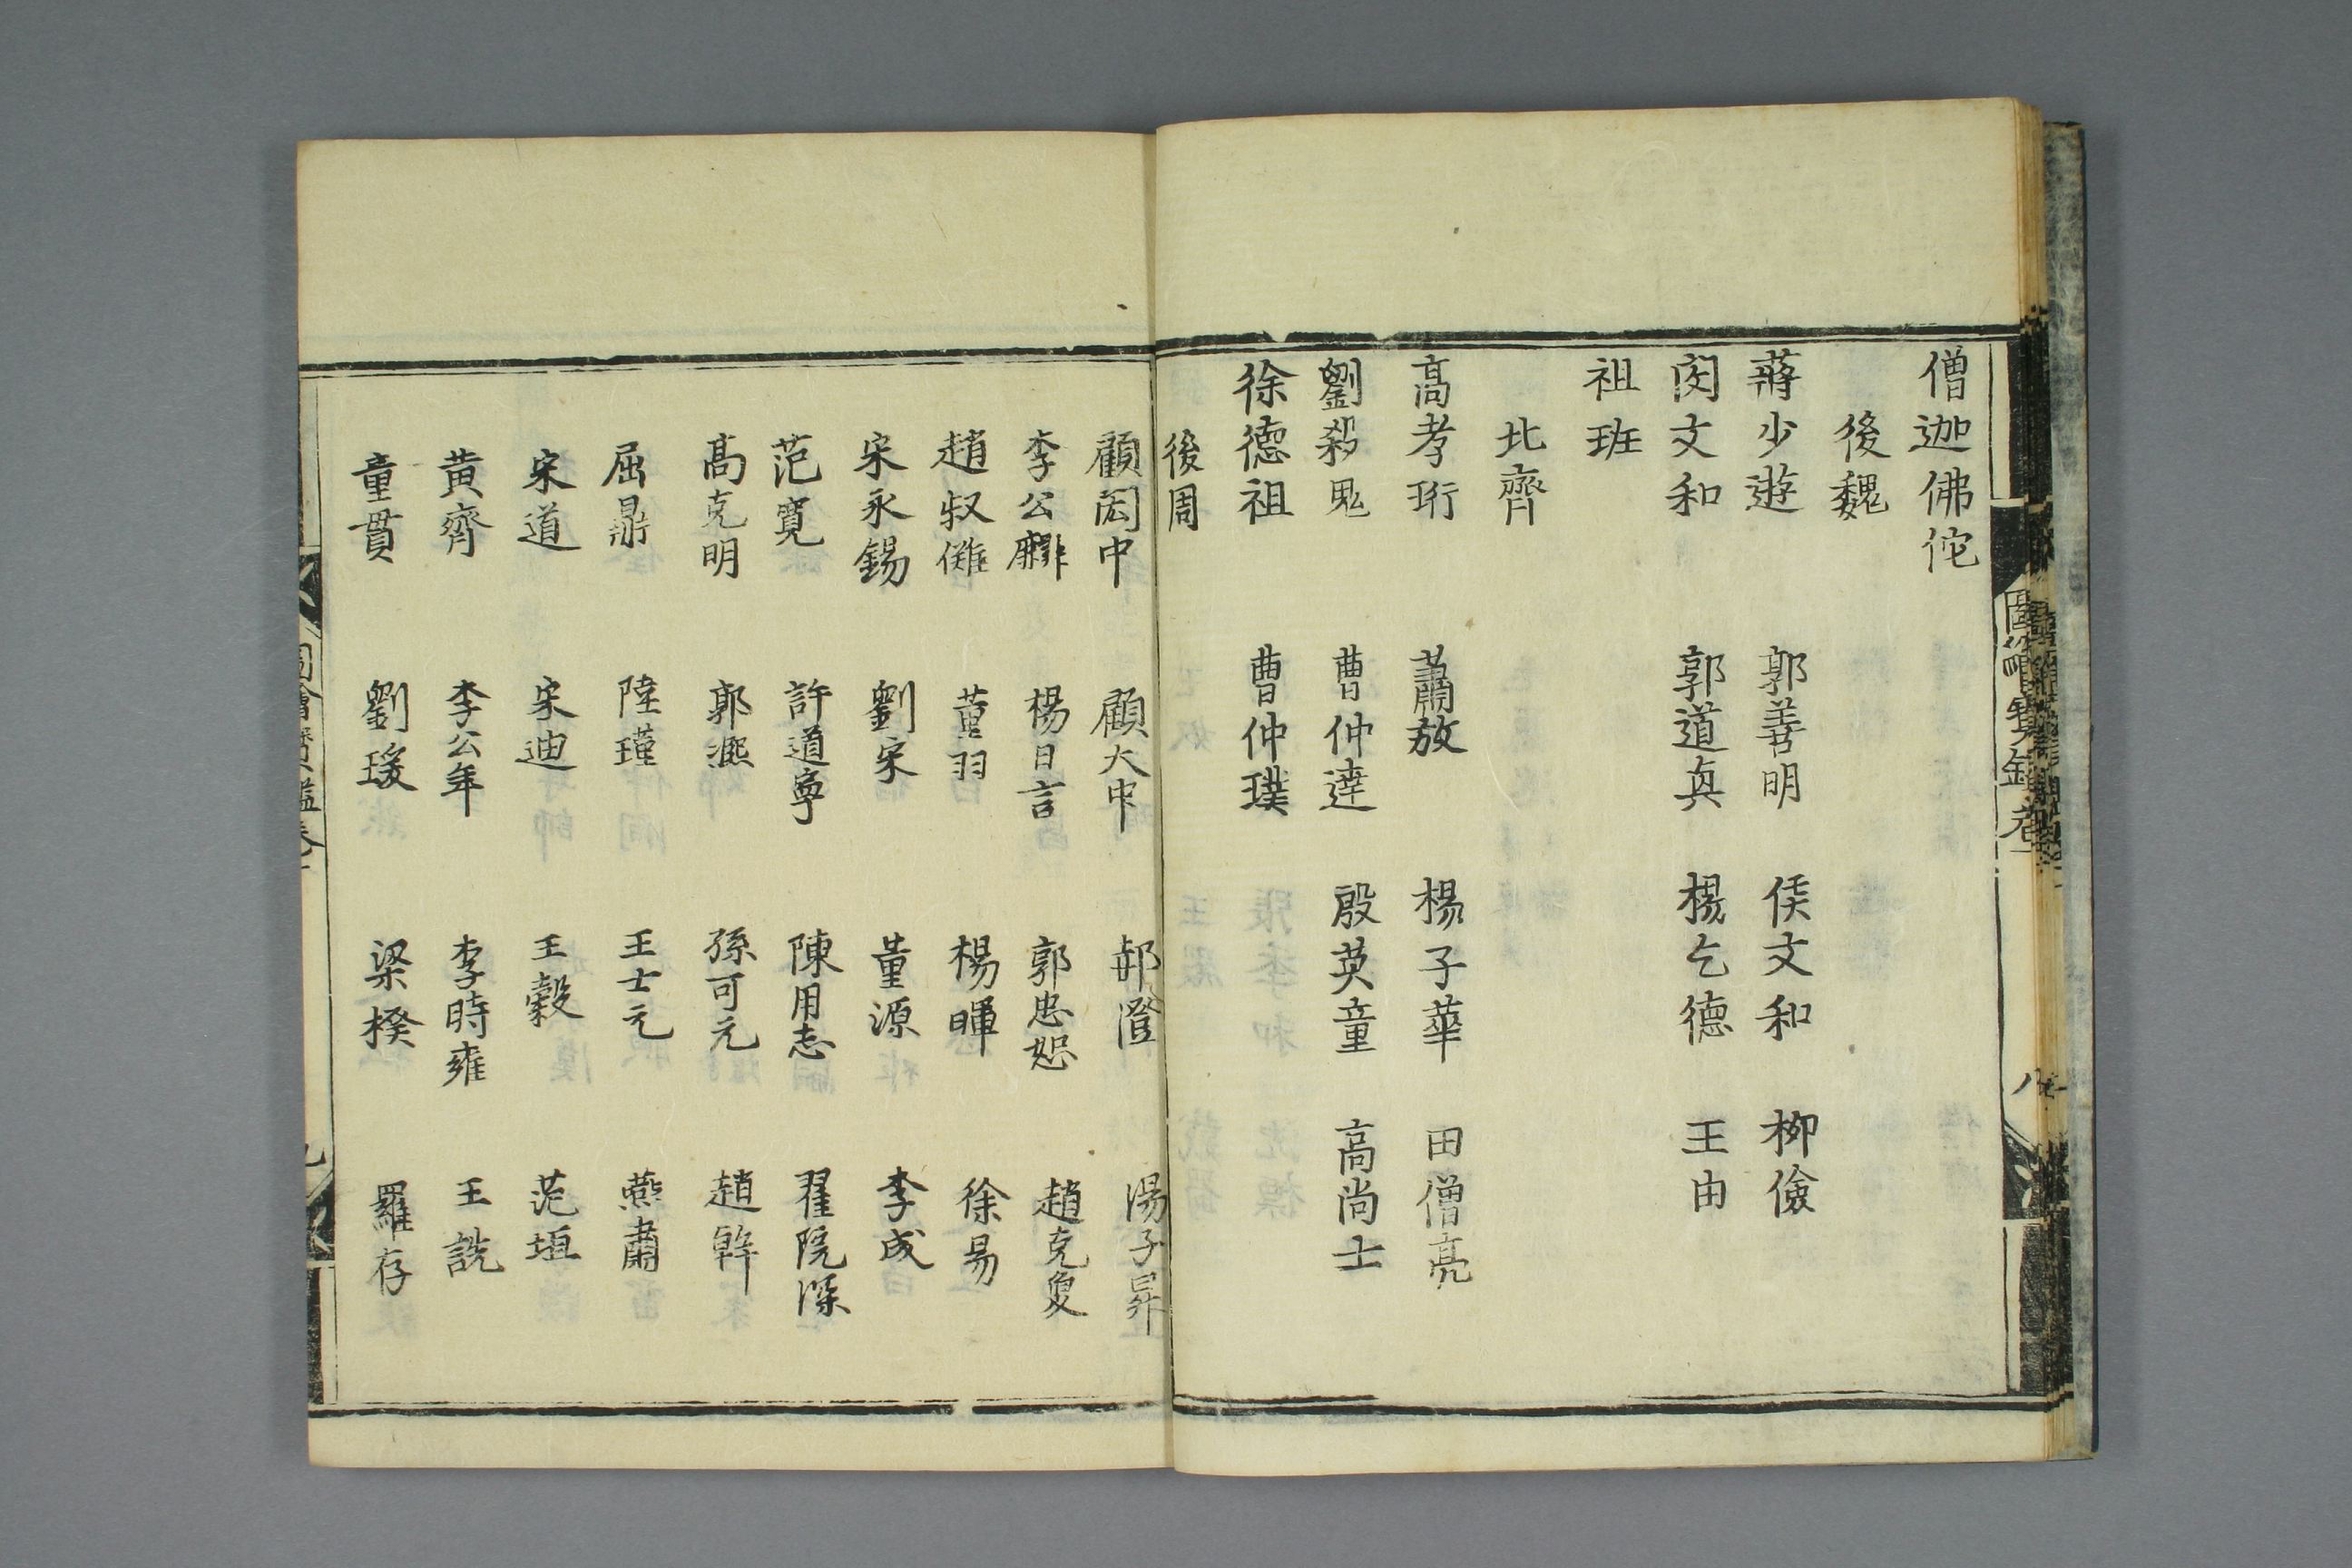 僧迦佛佗
後魏
蔣少遊 郭善明 侯文和 柳儉
閔文和 郭道真 楊乞德 王由
祖班
北齊
高孝珩 蕭放 楊子華 田僧亮
劉殺鬼 曹仲達 殷英童 高尚士
徐德祖 曹仲璞
後周
圖繪寶鑑卷
八
顧閎中 顧大中 郝澄 湯子昇
李公麟 楊日言 郭忠恕 趙克敻
趙叔儺 董羽 楊暉 徐易
宋永錫 劉宋 董源 李成
范寬 許道寧 陳用志 翟院深
高克明 郭熙 孫可元 趙幹
屈鼎 陸瑾 王士元 燕肅
宋道 宋迪 王穀 范垣
黃齊 李公年 李時雍 王詵
童貫 劉瑗 梁揆 羅存